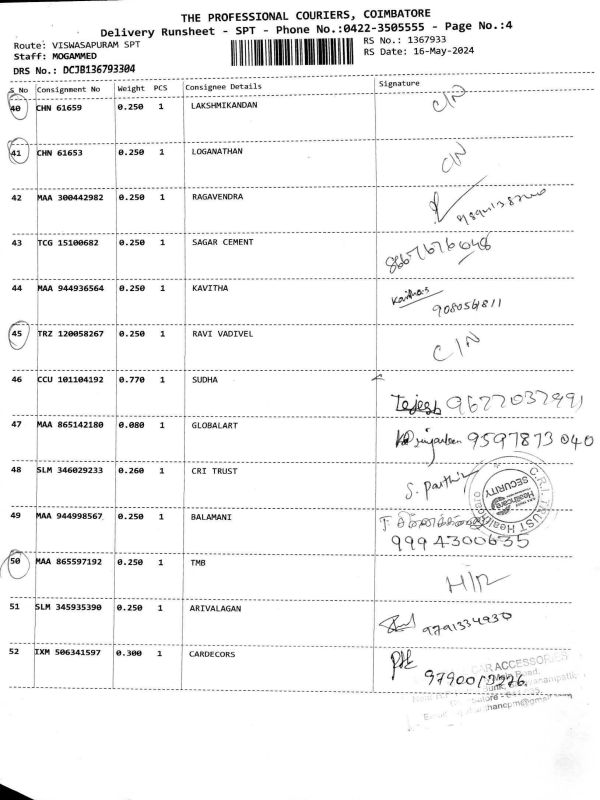 THE PROFESSIONAL COURIERS, COIMBATORE
Delivery Runsheet - SPT - Phone No.:0422-3505555 - Page No.:4
Route: VISWASAPURAM SPT
RS No.: 1367933
Staff: MOGAMMED
RS Date: 16-May-2024
DRS No.: DCJB136793304
S No Consignment No Weight PCS Consignee Details Signature
40 CHN 61659 0.250 1 LAKSHMIKANDAN C/N
41 CHN 61653 0.250 1 LOGANATHAN C/N
42 MAA 300442982 0.250 1 RAGAVENDRA
43 TCG 15100682 0.250 1 SAGAR CEMENT
44 MAA 944936564 0.250 1 KAVITHA Kavitha.s
45 TRZ 120058267 0.250 1 RAVI VADIVEL C/N
46 CCU 101104192 0.770 1 SUDHA
Tejesh
47 MAA 865142180 0.080 1 GLOBALART
9597873040
48 SLM 346029233 0.260 1 CRI TRUST
S. Parthi
C.R.I. TRUST Health
SECURITY
Healthcare
49 MAA 944998567 0.250 1 BALAMANI
9994300635
50 MAA 865597192 0.250 1 TMB
51 SLM 345935390 0.250 1 ARIVALAGAN
9791334930
52 IXM 506341597 0.300 1 CARDECORS
9790013226
CAR ACCESSORIES
Main Road,